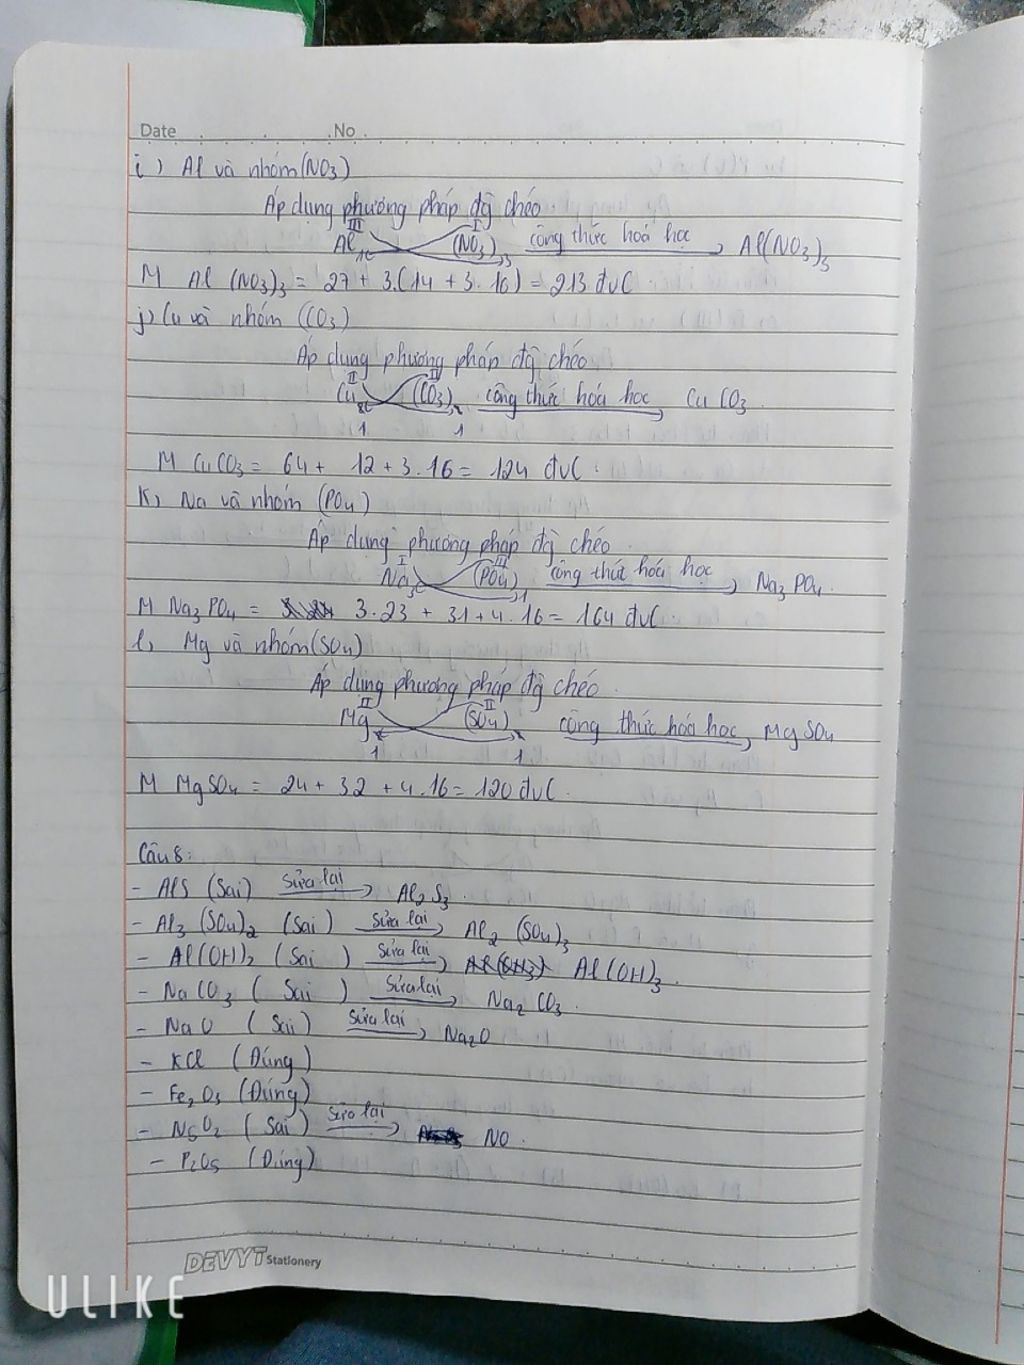 Date No.
i) Al và nhóm (NO3)
Áp dụng phương pháp đg̃ chéo
III I
Al1 (NO3)3 công thức hoá học Al(NO3)3
M Al (NO3)3 = 27 + 3.(14 + 3.16) = 213 đvC
j) Cu và nhóm (CO3)
Áp dụng phương pháp đg̃ chéo
II II
Cu (CO3) công thức hoá học CuCO3.
1 1
M CuCO3 = 64 + 12 + 3.16 = 124 đvC.
k) Na và nhóm (PO4)
Áp dụng phương pháp đg̃ chéo
I III
Na3 (PO4)1 công thức hoá học Na3PO4.
M Na3PO4 = 3.23 + 31 + 4.16 = 164 đvC
l) Mg và nhóm (SO4)
Áp dụng phương pháp đg̃ chéo.
II II
Mg (SO4) công thức hoá học MgSO4
1 1
M MgSO4 = 24 + 32 + 4.16 = 120 đvC.
Câu 8:
- AlS (Sai) sửa lại Al2S3.
- Al3(SO4)2 (Sai) sửa lại Al2(SO4)3
- Al(OH)2 (Sai) sửa lại Al(OH)3.
- NaCO3 (Sai) sửa lại Na2CO3.
- NaO (Sai) sửa lại Na2O
- KCl (Đúng)
- Fe2O3 (Đúng)
- N5O2 (Sai) sửa lại NO.
- P2O5 (Đúng)
DEVYT Stationery
ULIKE